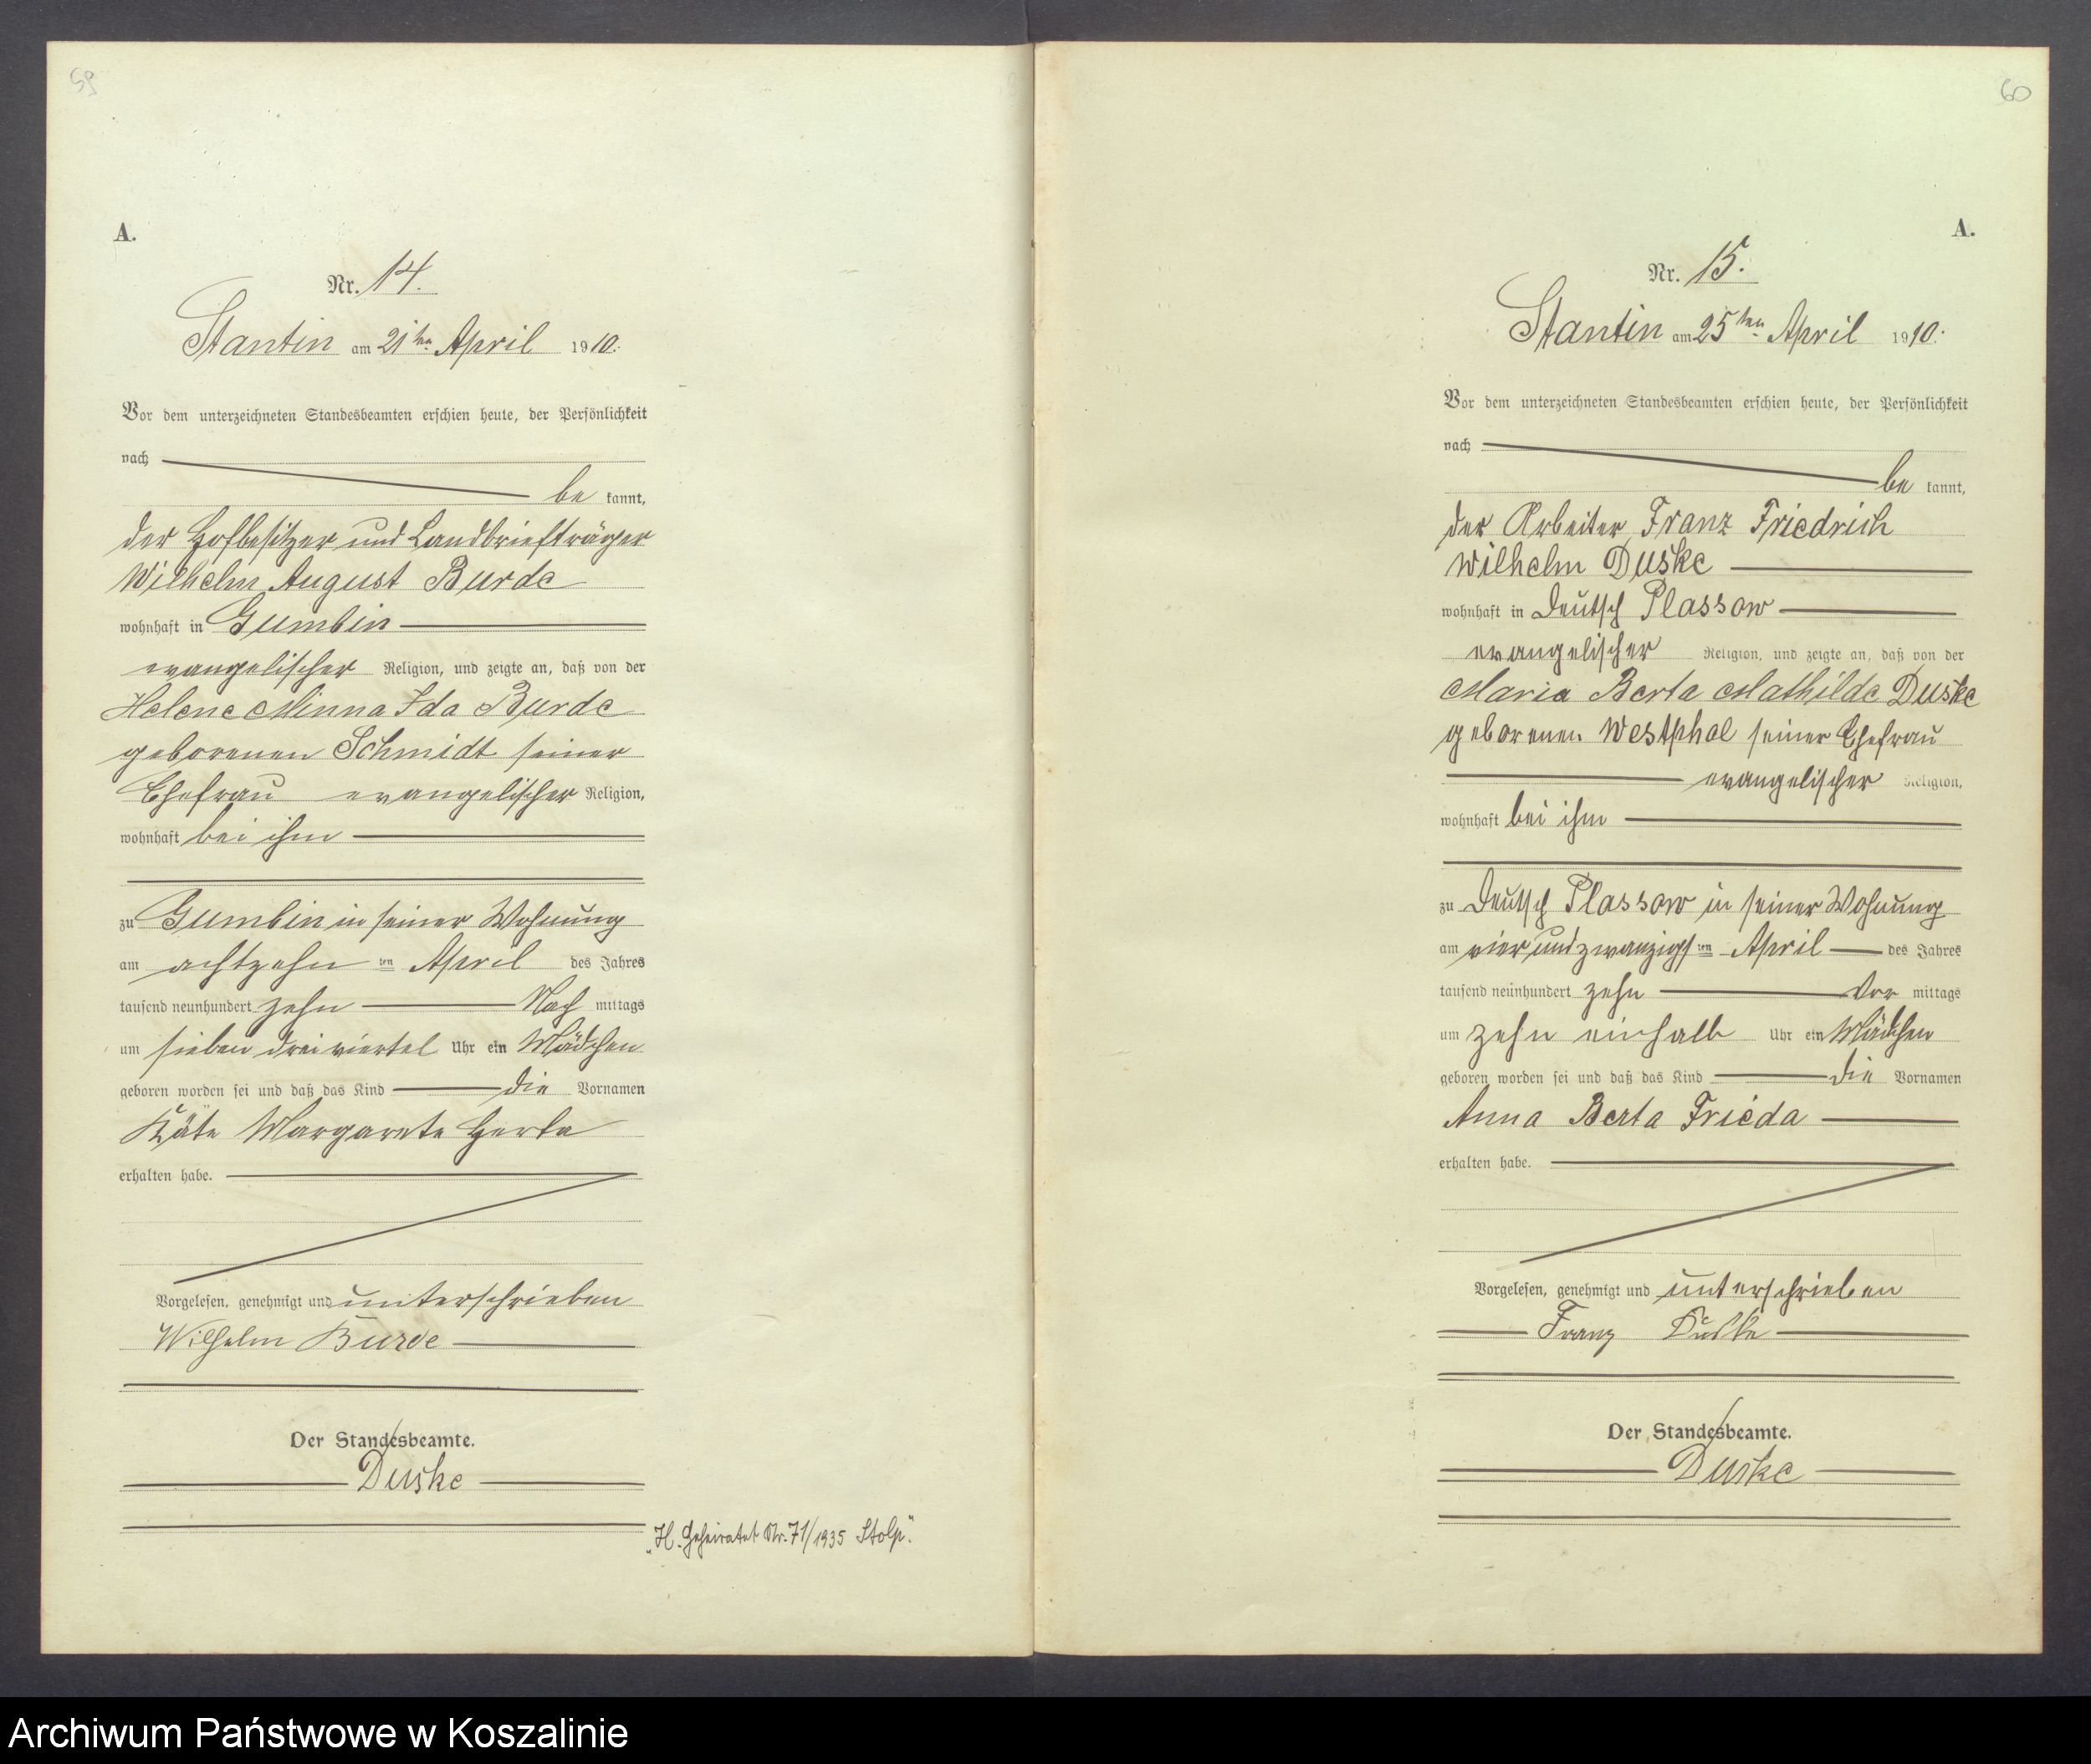 59
A.
Nr. 14.
Stantin am 21ten April 1910.
Vor dem unterzeichneten Standesbeamten erschien heute, der Persönlichkeit
nach
be kannt,
der Hofbesitzer und Landbriefträger
Wilhelm August Burde
wohnhaft in Gumbin
evangelischer Religion, und zeigte an, daß von der
Helene Minna Ida Burde
geborenen Schmidt seiner
Ehefrau evangelischer Religion,
wohnhaft bei ihm
zu Gumbin in seiner Wohnung
am achtzehn ten April des Jahres
tausend neunhundert zehn Nach mittags
um sieben dreiviertel Uhr ein Mädchen
geboren worden sei und daß das Kind die Vornamen
Käte Margarete Herta
erhalten habe.
Vorgelesen, genehmigt und unterschrieben
Wilhelm Burde
Der Standesbeamte.
Duske
"H. Geheiratet Nr. 71/1935 Stolp".
60
A.
Nr. 15.
Stantin am 25ten April 1910.
Vor dem unterzeichneten Standesbeamten erschien heute, der Persönlichkeit
nach
be kannt,
der Arbeiter Franz Friedrich
Wilhelm Duske
wohnhaft in Deutsch Plassow
evangelischer Religion, und zeigte an, daß von der
Maria Berta Mathilde Duske
geborenen Westphal seiner Ehefrau
evangelischer Religion,
wohnhaft bei ihm
zu Deutsch Plassow in seiner Wohnung
am vierundzwanzigs ten April des Jahres
tausend neunhundert zehn Vor mittags
um zehn einhalb Uhr ein Mädchen
geboren worden sei und daß das Kind die Vornamen
Anna Berta Frieda
erhalten habe.
Vorgelesen, genehmigt und unterschrieben
Franz Duske
Der Standesbeamte.
Duske
Archiwum Państwowe w Koszalinie